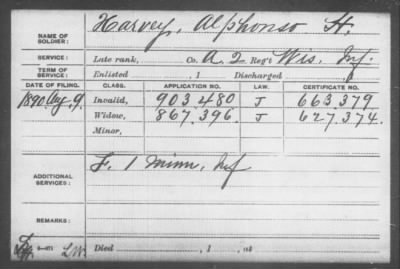 NAME OF SOLDIER: Harvey, Alphonso H.
SERVICE: Late rank, Co. A. 2 Reg't Wis. Inf.
TERM OF SERVICE: Enlisted , 1 Discharged , 1
DATE OF FILING. CLASS. APPLICATION NO. LAW. CERTIFICATE NO.
1890 Aug. 9. Invalid, 903.480 J 663.379
Widow, 867.396. J 627.374.
Minor,
ADDITIONAL SERVICES: F. 1 Minn. Inf
REMARKS:
Died , 1 , at